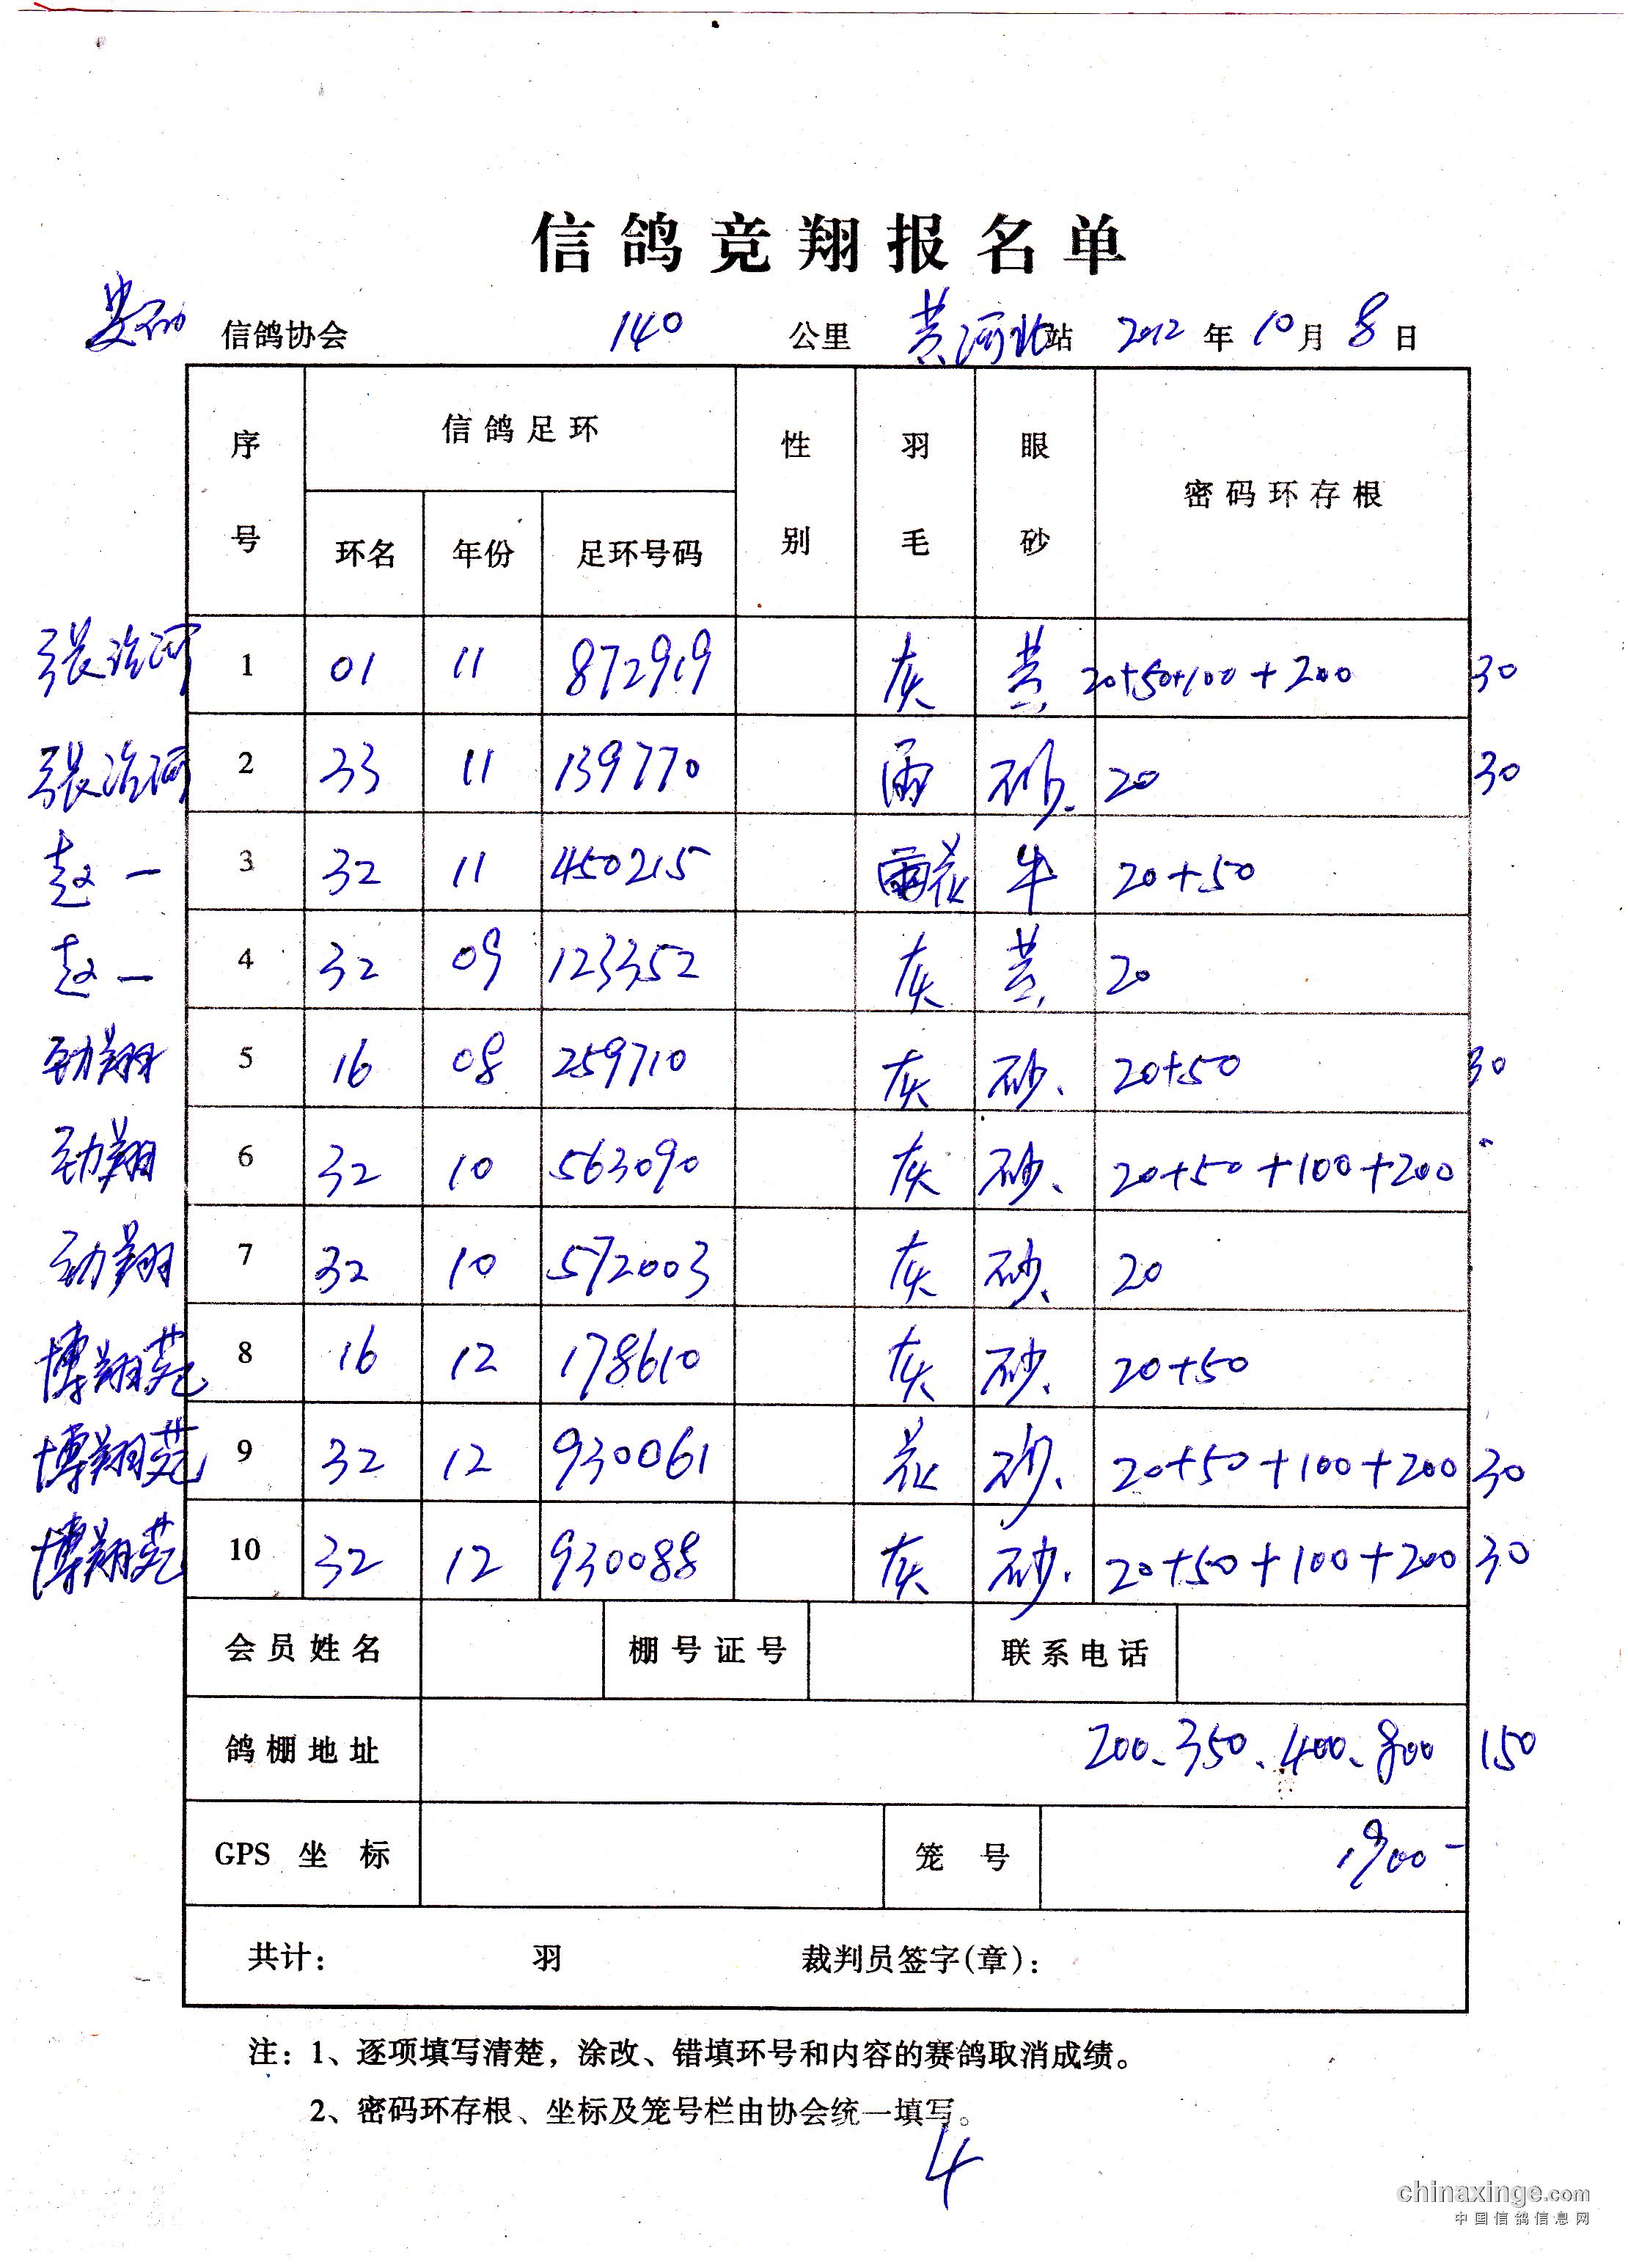 信鸽竞翔报名单
信鸽协会 140 公里 黄河北站 2012 年 10 月 8 日
序号 信鸽足环 性别 羽毛 眼砂 密码环存根
环名 年份 足环号码
张治河 1 01 11 872919 灰 黄 20+50+100+200 30
张治河 2 33 11 139770 雨 砂 20 30
赵一 3 32 11 450215 雨花 牛 20+50
赵一 4 32 09 123352 灰 黄 20
劲翔 5 16 08 259710 灰 砂 20+50 30
劲翔 6 32 10 563090 灰 砂 20+50+100+200
劲翔 7 32 10 572003 灰 砂 20
博翔苑 8 16 12 178610 灰 砂 20+50
博翔苑 9 32 12 930061 花 砂 20+50+100+200 30
博翔苑 10 32 12 930088 灰 砂 20+50+100+200 30
会员姓名 棚号证号 联系电话
鸽棚地址 200、350、400、800 150
GPS 坐标 笼号 1900-
共计： 羽 裁判员签字(章)：
注：1、逐项填写清楚，涂改、错填环号和内容的赛鸽取消成绩。
2、密码环存根、坐标及笼号栏由协会统一填写。
4
chinaxinge.com
中国信鸽信息网